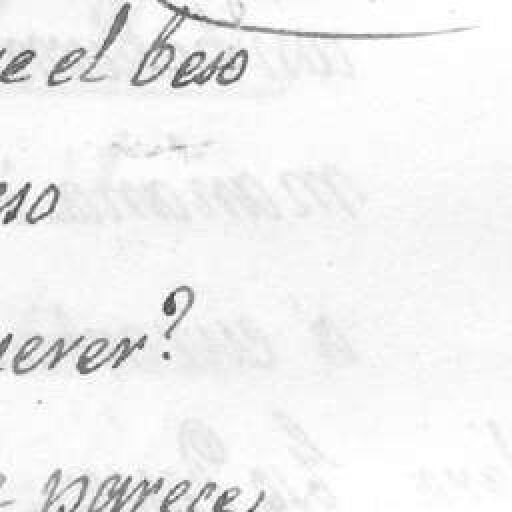 e el beso
eso
uerer?
parece